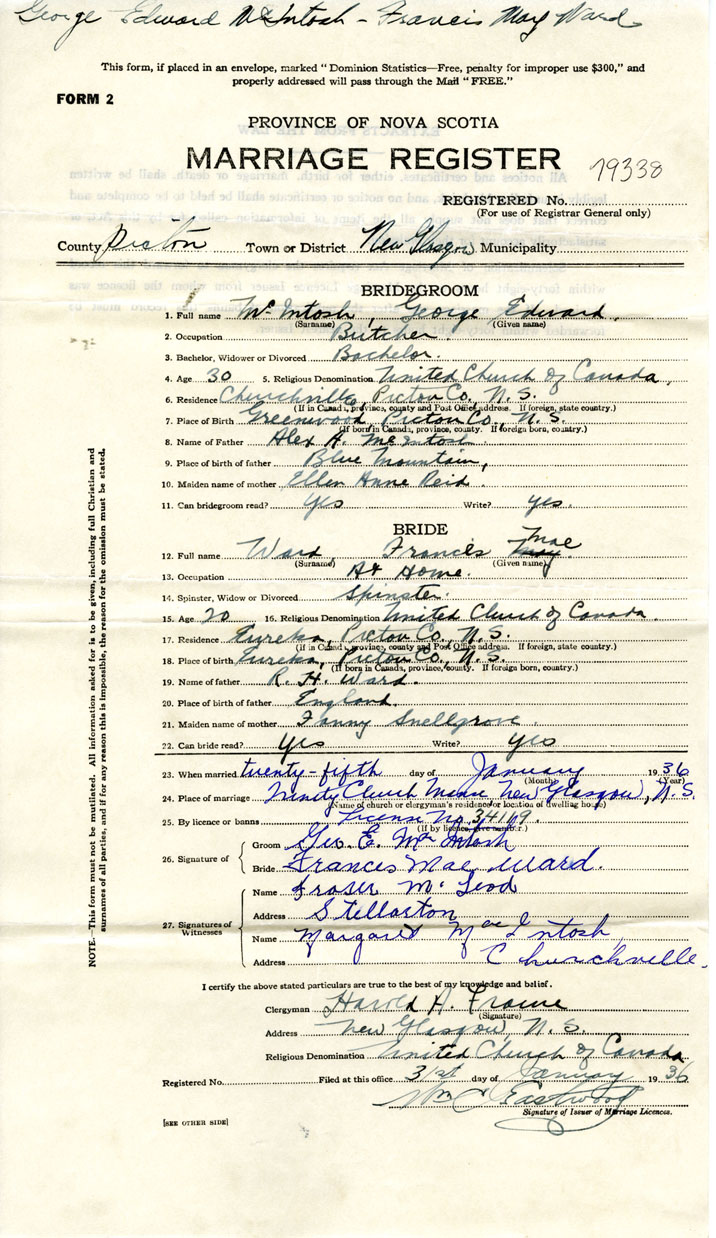 George Edward McIntosh - Francis May Ward
This form, if placed in an envelope, marked "Dominion Statistics—Free, penalty for improper use $300," and
properly addressed will pass through the Mail "FREE."
FORM 2
PROVINCE OF NOVA SCOTIA
MARRIAGE REGISTER 19338
REGISTERED No.
(For use of Registrar General only)
County Pictou Town or District New Glasgow Municipality
BRIDEGROOM
1. Full name McIntosh, George Edward.
(Surname) (Given name)
2. Occupation Butcher.
3. Bachelor, Widower or Divorced Bachelor.
4. Age 30 5. Religious Denomination United Church of Canada,
6. Residence Churchville, Pictou Co., N. S.
(If in Canada, province, county and Post Office address. If foreign, state country.)
7. Place of Birth Greenwood, Pictou Co., N. S.
(If born in Canada, province, county. If foreign born, country.)
8. Name of Father Alex A. McIntosh
9. Place of birth of father Blue Mountain,
10. Maiden name of mother Ellen Anne Reid.
11. Can bridegroom read? Yes Write? yes.
BRIDE
12. Full name Ward, Frances May Mae
(Surname) (Given name)
13. Occupation At Home.
14. Spinster, Widow or Divorced Spinster.
15. Age 20 16. Religious Denomination United Church of Canada.
17. Residence Eureka, Pictou Co., N. S.
(If in Canada, province, county and Post Office address. If foreign, state country.)
18. Place of birth Eureka, Pictou Co., N. S.
(If born in Canada, province, county. If foreign born, country.)
19. Name of father R. H. Ward.
20. Place of birth of father England.
21. Maiden name of mother Fanny Snellgrove.
22. Can bride read? Yes Write? yes
23. When married twenty-fifth day of January 1936
(Month) (Year)
24. Place of marriage Trinity Church Manse New Glasgow, N. S.
(Name of church or clergyman's residence or location of dwelling house)
25. By licence or banns License No. 34119.
(If by licence, give number.)
26. Signature of
Groom Geo. E. McIntosh
Bride Frances Mae Ward.
27. Signatures of Witnesses
Name Fraser McLeod
Address Stellarton
Name Margaret MacIntosh
Address Churchville.
I certify the above stated particulars are true to the best of my knowledge and belief.
Clergyman Harold A. Frame
(Signature)
Address New Glasgow, N. S.
Religious Denomination United Church of Canada
Registered No. Filed at this office 31st day of January 1936
Wm C Eastwood
Signature of Issuer of Marriage Licences.
[SEE OTHER SIDE]
NOTE.—This form must not be mutilated. All information asked for is to be given, including full Christian and
surnames of all parties, and if for any reason this is impossible, the reason for the omission must be stated.